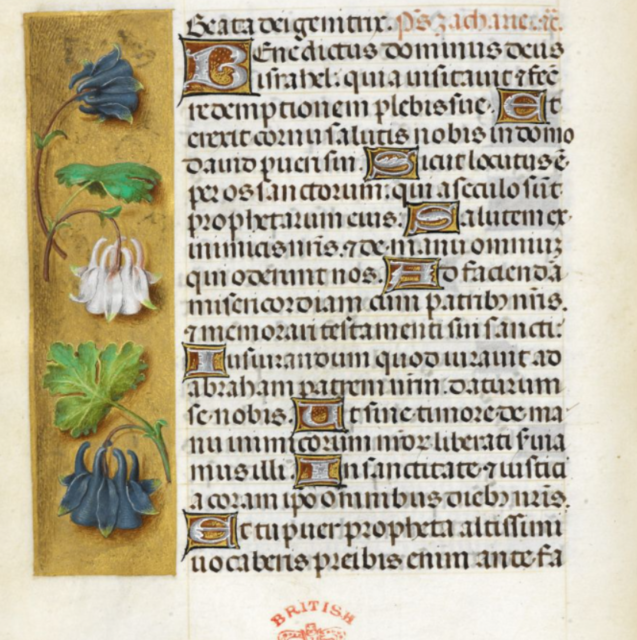 Beata dei genitrix. ps zacharie
Benedictus dominus deus
israhel: quia visitavit ⁊ fec̄
redemptionem plebis sue. Et
erexit cornu salutis nobis in domo
david pueri sui. Sicut locutus ē
per os sanctorum: qui a seculo sūt
prophetarum eius. Salutem ex
inimicis nr̄is. ⁊ de manu omniuꝫ
qui oderunt nos. Ad faciendā
misericordiam cum patribꝰ nr̄is.
⁊ memorari testamenti sui sancti.
Iusiurandum quod iuravit ad
abraham patrem nr̄m. daturum
se nobis. Ut sine timore de ma
nu inimicorum nr̄or liberati servia
mus illi. In sanctitate ⁊ iustici
a coram ipō omnibus diebꝰ nr̄is.
Et tu puer propheta altissimi
vocaberis preibis enim ante fa
BRITISH